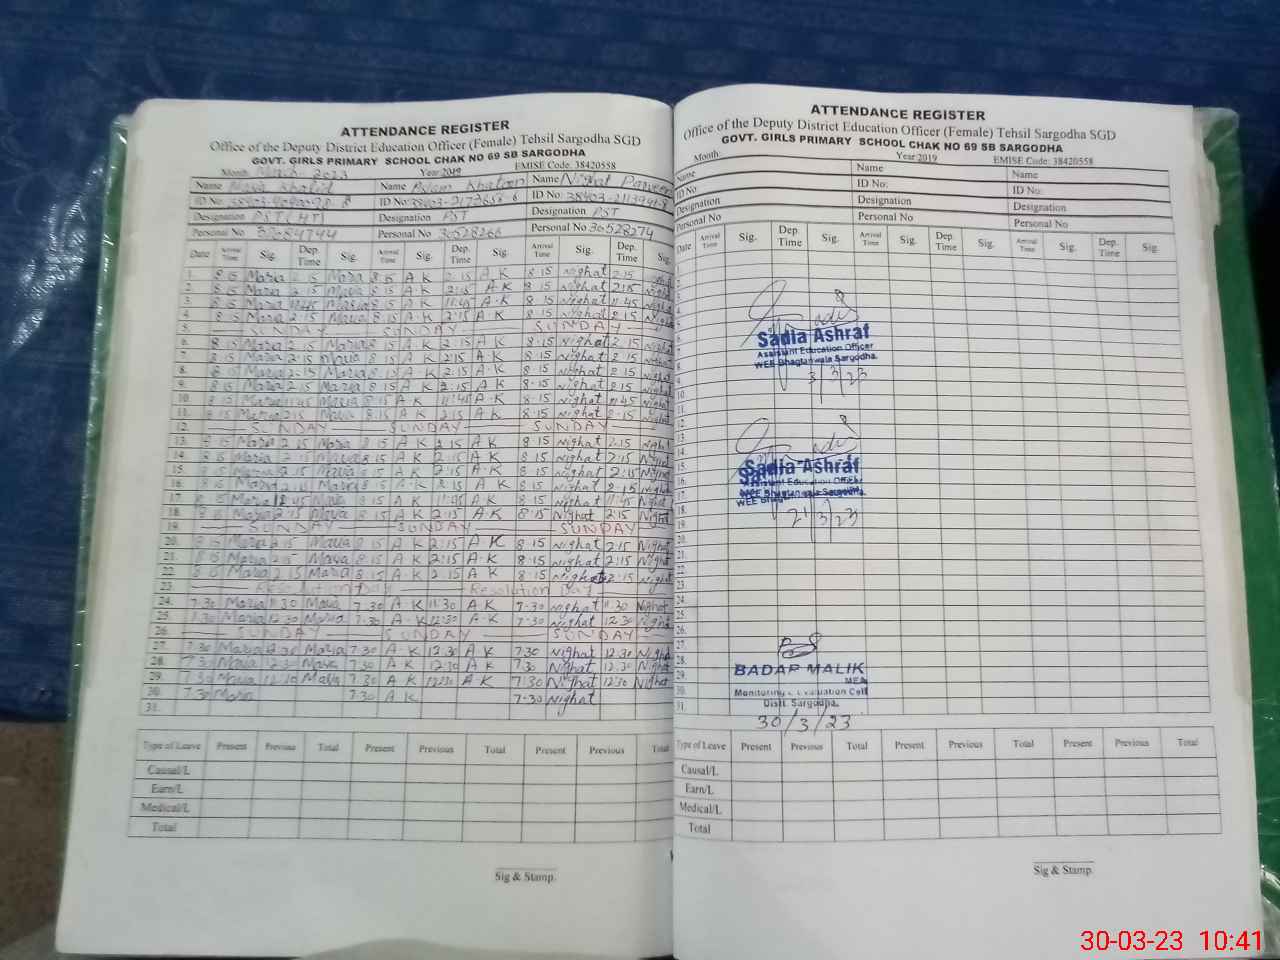 ATTENDANCE REGISTER
Office of the Deputy District Education Officer (Female) Tehsil Sargodha SGD
GOVT. GIRLS PRIMARY SCHOOL CHAK NO 69 SB SARGODHA
Month March 2023 Year 2019 EMISE Code: 38420558
Name Maria Khalid Name Khatoon Name Nighat Parveen
ID No. ID No: ID No:
Designation PST (HT) Designation PST Designation PST
Personal No Personal No 36528266 Personal No 36528274
Date Arrival Time Sig. Dep. Time Sig. Arrival Time Sig. Dep. Time Sig. Arrival Time Sig. Dep. Time Sig.
1. 8 15 Maria 2 15 Maria 8 15 A K 2 15 A K 8 15 Nighat 2.15
2. 8 15 Maria 2 15 Maria 8 15 A K 2:15 A K 8.15 Nighat 2:15
3. 8 15 Maria 11:45 Maria 8 15 A K 11:45 A K 8.15 Nighat 11.45
4. 8 15 Maria 2 15 Maria 8 15 A K 2:15 A K 8.15 Nighat 2.15
5. SUNDAY SUNDAY SUNDAY
6. 8 15 Maria 2 15 Maria 8 15 A K 2 15 A K 8.15 Nighat 2.15
7. 8 15 Maria 2:15 Maria 8 15 A K 2:15 A K 8.15 Nighat 2.15
8. 8 15 Maria 2.15 Maria 8 15 A K 2:15 A K 8.15 Nighat 2.15
9. 8 15 Maria 2 15 Maria 8.15 A K 2:15 A K 8.15 Nighat 2.15
10. 8 15 Maria 11:45 Maria 8 15 A K 11:45 A K 8.15 Nighat 11.45
11. 8 15 Maria 2 15 Maria 8 15 A K 2:15 A K 8.15 Nighat 2.15
12. SUNDAY SUNDAY SUNDAY
13. 8 15 Maria 2 15 Maria 8 15 A K 2 15 A K 8 15 Nighat 2.15 Nighat
14. 8 15 Maria 2 15 Maria 8 15 A K 2:15 A K 8.15 Nighat 2:15 Nighat
15. 8 15 Maria 2 15 Maria 8 15 A K 2:15 A K 8.15 Nighat 2:15 Nighat
16. 8 15 Maria 2 15 Maria 8 15 A K 2:15 A K 8.15 Nighat 2.15 Nighat
17. 8 15 Maria Maria 8 15 A K 11:45 A K 8.15 Nighat 11:45 Nighat
18. 8 15 Maria 2:15 Maria 8 15 A K 2:15 A K 8.15 Nighat 2:15 Nighat
19. SUNDAY SUNDAY SUNDAY
20. 8 15 Maria 2 15 Maria 8 15 A K 2:15 A K 8.15 Nighat 2:15 Nighat
21. 8 15 Maria 2 15 Maria 8 15 A K 2:15 A K 8.15 Nighat 2:15 Nighat
22. 8 15 Maria 2 15 Maria 8 15 A K 2 15 A K 8.15 Nighat 2:15 Nighat
23 Resolution Day
24. 7.30 Maria 11 30 Maria 7.30 A K 11:30 A K 7-30 Nighat 11.30 Nighat
25. 7.30 Maria 12 30 Maria 7.30 A K 12:30 A K 7-30 Nighat 12.30 Nighat
26. SUNDAY SUNDAY SUNDAY
27. 7 30 Maria 12 30 Maria 7 30 A K 12.30 A K 7.30 Nighat 12.30 Nighat
28. 7 30 Maria 12 30 Maria 7 30 A K 12.30 A K 7.30 Nighat 12.30 Nighat
29. 7 30 Maria 12 30 Maria 7.30 A K 12:30 A K 7.30 Nighat 12.30 Nighat
30. 7 30 Maria 7.30 A K 7-30 Nighat
31.
Type of Leave Present Previous Total Present Previous Total Present Previous Total
Causal/L
Earn/L
Medical/L
Total
Sig & Stamp.
ATTENDANCE REGISTER
Office of the Deputy District Education Officer (Female) Tehsil Sargodha SGD
GOVT. GIRLS PRIMARY SCHOOL CHAK NO 69 SB SARGODHA
Month: Year 2019 EMISE Code: 38420558
Name Name Name
ID No ID No: ID No:
Designation Designation Designation
Personal No Personal No Personal No
Date Arrival Time Sig. Dep. Time Sig. Arrival Time Sig. Dep. Time Sig. Arrival Time Sig. Dep. Time Sig.
Sadia Ashraf
Assistant Education Officer
WEE Bhagtanwala Sargodha.
3/3/23
Sadia Ashraf
Assistant Education Officer
WEE Bhagtanwala Sargodha.
21/3/23
BADAR MALIK
MEA
Monitoring & Evaluation Cell
Distt. Sargodha.
30/3/23
Type of Leave Present Previous Total Present Previous Total Present Previous Total
Causal/L
Earn/L
Medical/L
Total
Sig & Stamp.
30-03-23 10:41